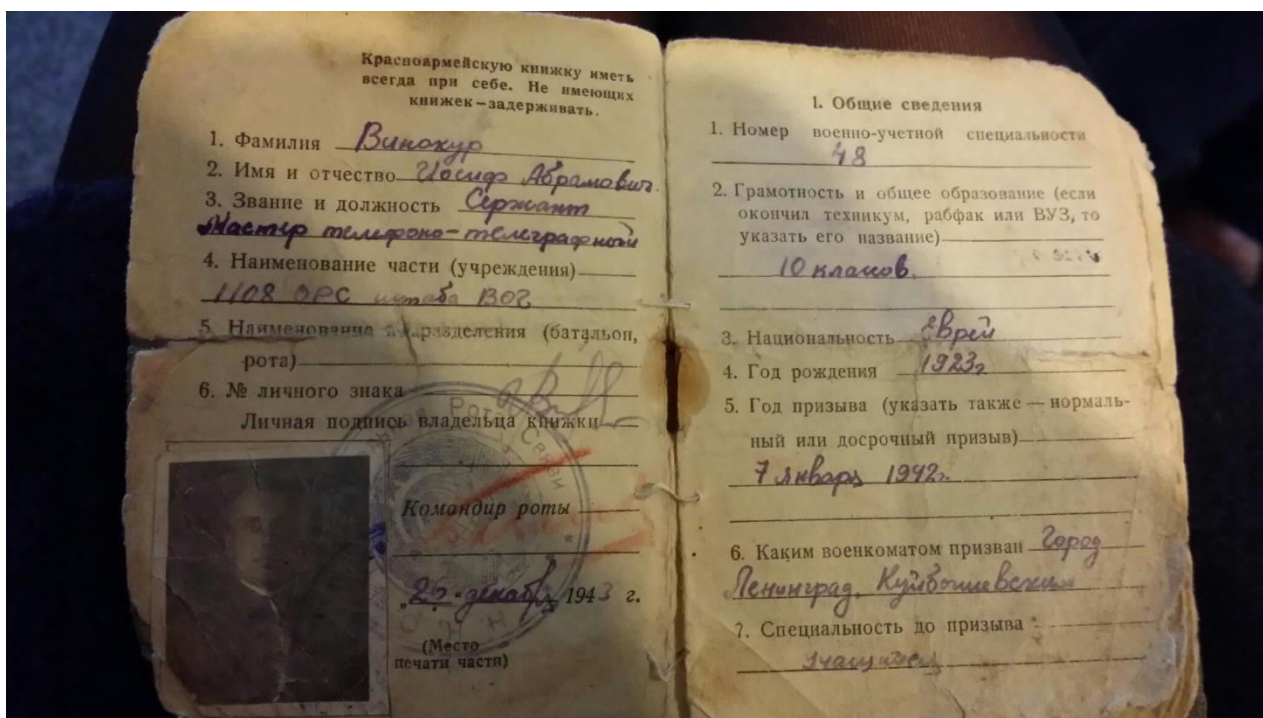 Красноармейскую книжку иметь
всегда при себе. Не имеющих
книжек—задерживать.
1. Фамилия Винокур
2. Имя и отчество Иосиф Абрамович.
3. Звание и должность Сержант
Мастер телефоно-телеграфный
4. Наименование части (учреждения)
1108 ОРС штаба ВОГ
5. Наименование подразделения (батальон,
рота)
6. № личного знака
Личная подпись владельца книжки
Рота Связи
Командир роты
„26" декабрь 1943 г.
(Место
печати части)
1. Общие сведения
1. Номер военно-учетной специальности
48
2. Грамотность и общее образование (если
окончил техникум, рабфак или ВУЗ, то
указать его название)
10 класов.
3. Национальность Еврей
4. Год рождения 1923г
5. Год призыва (указать также — нормаль-
ный или досрочный призыв)
7 январь 1942г.
6. Каким военкоматом призван Город
Ленинград, Куйбышевским
7. Специальность до призыва
учащийся